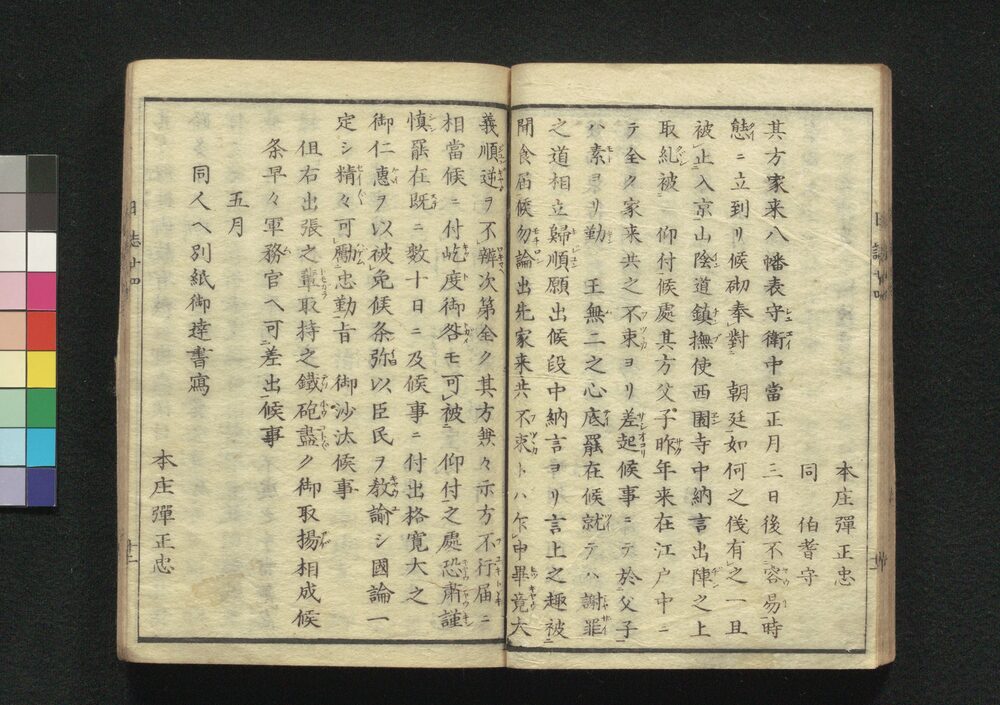 本庄彈正忠
同　伯耆守
其方家来八幡表守衛中當正月三日後不容易時
態ニ立到リ候砌奉對　朝廷如何之儀有之一旦
被止入京山陰道鎮撫使西園寺中納言出陣之上
取糺被　仰付候處其方父子昨年来在江戸中ニ
テ全ク家来共之不束ヨリ差起候事ニテ於父子
ハ素ヨリ勤　王無二之心底羅在候就テハ謝罪
之道相立歸順願出候段中納言ヨリ言上之趣被
聞食届候勿論出先家来共不束トハ乍申畢竟大
義順逆ヲ不辨次第全ク其方無々示方不行届ニ
相當候ニ付屹度御咎モ可被　仰付之處恐肅謹
慎羅在既ニ數十日ニ及候事ニ付出格寛大之
御仁惠ヲ以被免候条弥以臣民ヲ教諭シ國論一
定シ精々可勵忠勤旨　御沙汰候事
但右出張之輩取持之鐵砲盡ク御取揚相成候
条早々軍務官へ可差出候事
五月
同人へ別紙御達書寫
本庄彈正忠
日誌十四